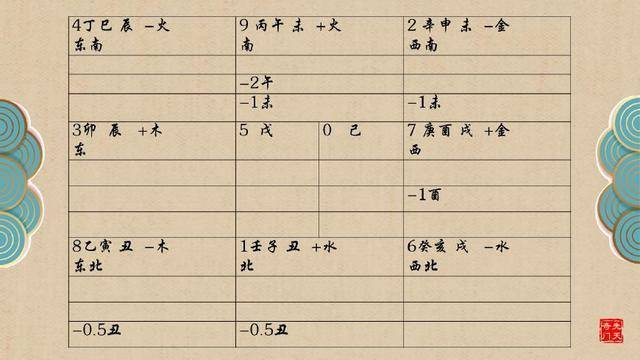 4丁巳 辰 -火
东南
9 丙午 未 +火
南
2 辛申 未 -金
西南
-2午
-1未
-1未
3卯 辰 +木
东
5 戊
0 己
7 庚酉 戌 +金
西
-1酉
8乙寅 丑 -木
东北
1壬子 丑 +水
北
6癸亥 戌 -水
西北
-0.5丑
-0.5丑